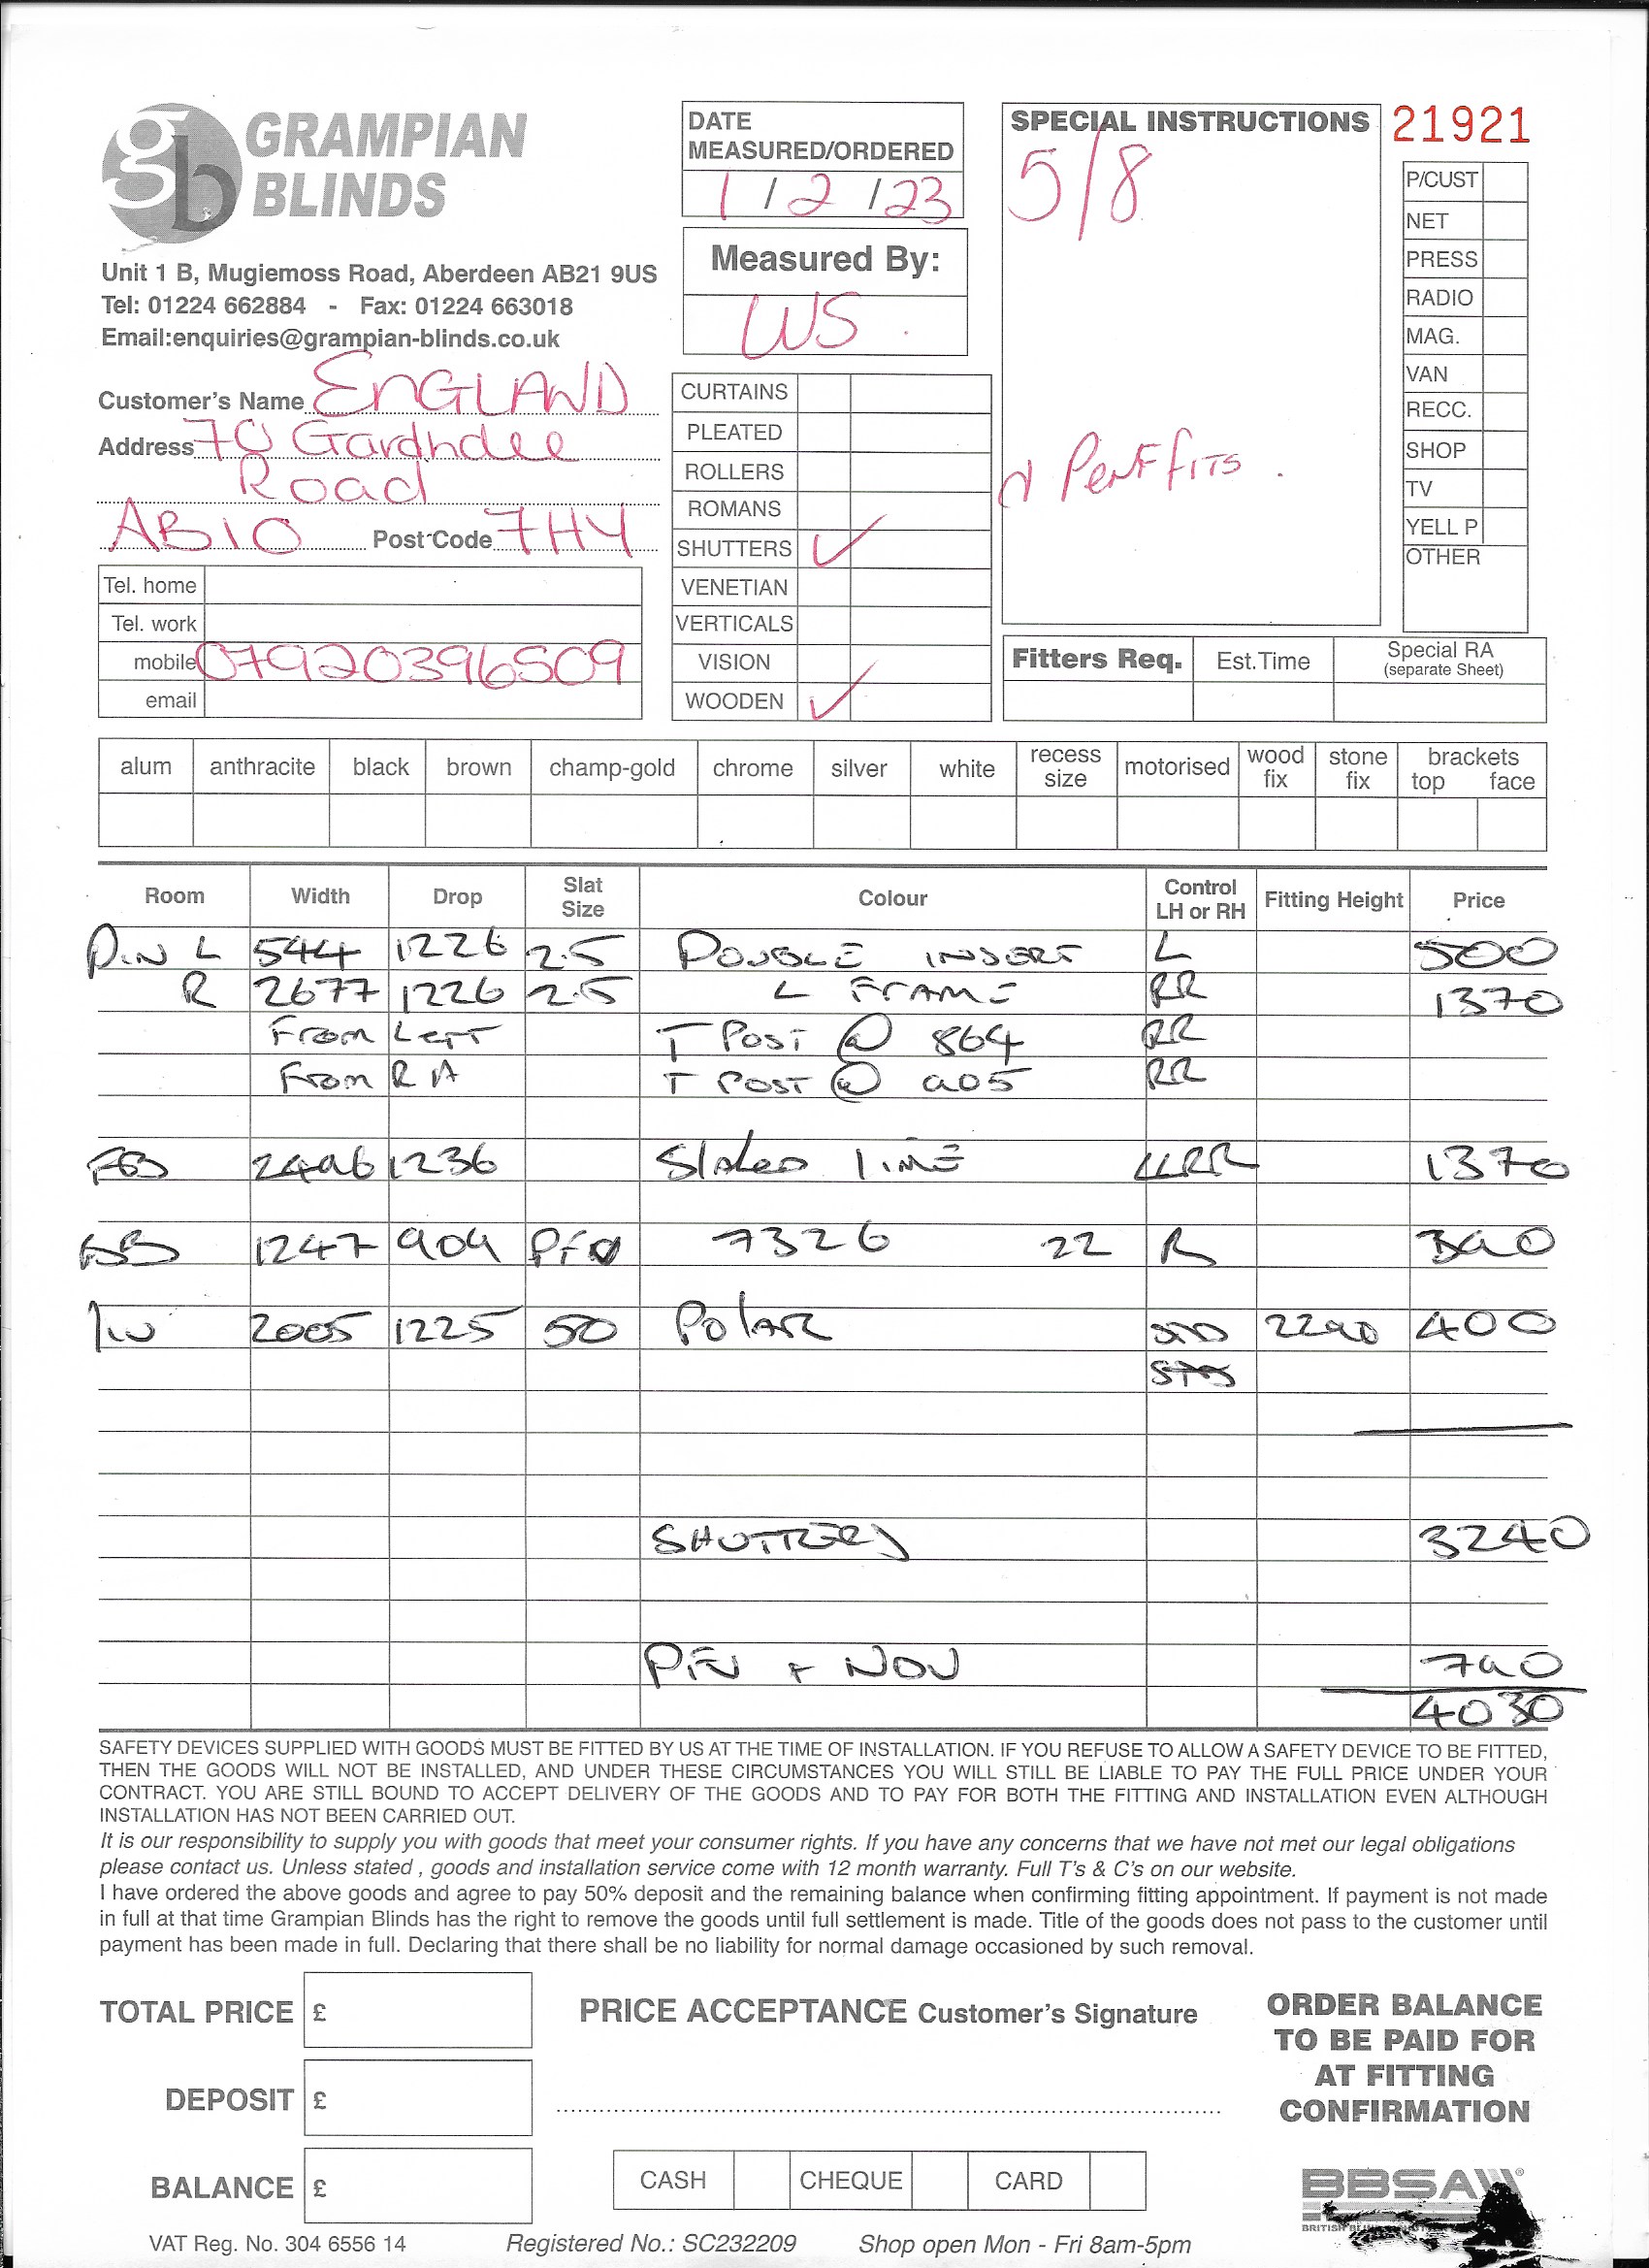 GRAMPIAN
BLINDS
Unit 1 B, Mugiemoss Road, Aberdeen AB21 9US
Tel: 01224 662884 - Fax: 01224 663018
Email:enquiries@grampian-blinds.co.uk
DATE
MEASURED/ORDERED
1 / 2 / 23
Measured By:
WS
SPECIAL INSTRUCTIONS
5/8
21921
P/CUST
NET
PRESS
RADIO
MAG.
VAN
RECC.
SHOP
TV
YELL P
OTHER
Customer's Name ENGLAND
Address 70 Garthdee
Road
AB10 Post Code 7HY
Tel. home
Tel. work
mobile 07920396509
email
CURTAINS
PLEATED
ROLLERS
ROMANS
SHUTTERS ✓
VENETIAN
VERTICALS
VISION
WOODEN ✓
Perf fits.
Fitters Req. Est.Time Special RA
(separate Sheet)
alum anthracite black brown champ-gold chrome silver white recess size motorised wood fix stone fix brackets top face
Room Width Drop Slat Size Colour Control LH or RH Fitting Height Price
Din L 544 1226 2.5 DOUBLE INSERT L 500
R 2677 1226 2.5 L FRAME RR 1370
From Left T POST @ 864 RR
From R H T POST @ 905 RR
2496 1236 LLRR 1370
1247 909 7326 22 R 390
2005 1225 50 Polar STD 2290 400
SHUTTERS 3240
790
4030
SAFETY DEVICES SUPPLIED WITH GOODS MUST BE FITTED BY US AT THE TIME OF INSTALLATION. IF YOU REFUSE TO ALLOW A SAFETY DEVICE TO BE FITTED,
THEN THE GOODS WILL NOT BE INSTALLED, AND UNDER THESE CIRCUMSTANCES YOU WILL STILL BE LIABLE TO PAY THE FULL PRICE UNDER YOUR
CONTRACT. YOU ARE STILL BOUND TO ACCEPT DELIVERY OF THE GOODS AND TO PAY FOR BOTH THE FITTING AND INSTALLATION EVEN ALTHOUGH
INSTALLATION HAS NOT BEEN CARRIED OUT.
It is our responsibility to supply you with goods that meet your consumer rights. If you have any concerns that we have not met our legal obligations
please contact us. Unless stated , goods and installation service come with 12 month warranty. Full T's & C's on our website.
I have ordered the above goods and agree to pay 50% deposit and the remaining balance when confirming fitting appointment. If payment is not made
in full at that time Grampian Blinds has the right to remove the goods until full settlement is made. Title of the goods does not pass to the customer until
payment has been made in full. Declaring that there shall be no liability for normal damage occasioned by such removal.
TOTAL PRICE £
PRICE ACCEPTANCE Customer's Signature
ORDER BALANCE
TO BE PAID FOR
AT FITTING
CONFIRMATION
DEPOSIT £
BALANCE £
CASH CHEQUE CARD
BBSA
VAT Reg. No. 304 6556 14 Registered No.: SC232209 Shop open Mon - Fri 8am-5pm